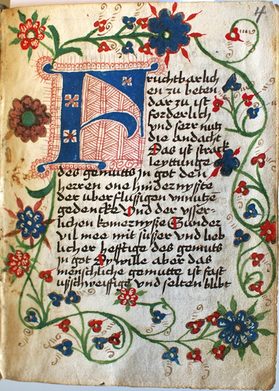 Fruchtbarlich
en zu beten
dar zu ist
forderlich
vnd serr nutz
die andacht
Das ist strack
leyttunge
des gemuts zu got den
herren one hindernysse
der vberflussigen vnnutze
gedencke Vnd der vsser-
lichen komernysse Sunder
vil mee mit susser vnd lieb
licher hefftige des gemuts
zu got Dywille aber das
menschliche gemutte ist fast
vsschweiffig vnd selten blibt